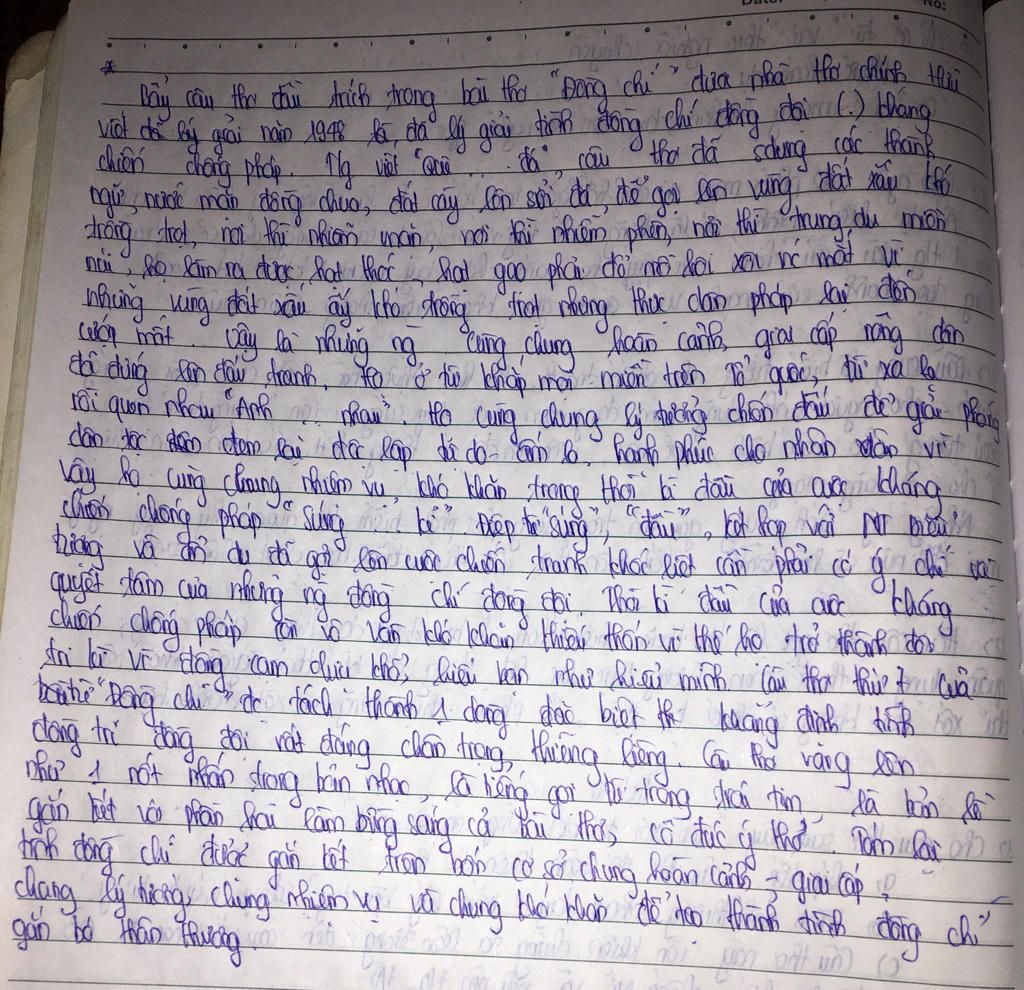 No:
*
Bẩy câu thơ đầu trích trong bài thơ "Đồng chí" của nhà thơ chính Hữu
viết để lý giải năm 1948 là, đã lý giải tình đồng chí đồng đội (.) kháng
chiến chống pháp. Mg viết "Quê ... đá" câu thơ đã sdụng các thành
ngữ, nước mặn đồng chua, đất cày lên sỏi đá, để gợi lên vùng đất xấu khó
trồng trọt, nơi thì nhiễm mặn, nơi thì nhiễm phèn, nơi thì trung du miền
núi, họ làm ra được hạt thóc, hạt gạo phải đổ mồ hôi xôi nc mắt vì
những vùng đất xấu ấy khó trồng trọt nhưng thực dân pháp lại đến
cướp mất. Vậy là những ng cùng chung hoàn cảnh, giai cấp nông dân
đã đứng lên đấu tranh. Họ ở từ khắp mọi miền trên Tổ quốc, từ xa lạ
rồi quen nhau "Anh ... nhau". Họ cùng chung lý tưởng chiến đấu để giải phóng
dân tộc đem lại độc lập tự do - ấm lo, hạnh phúc cho nhân dân vì
vậy họ cùng chung nhiệm vụ, khó khăn trong thời kì đầu của cuộc kháng
chiến chống pháp "Súng ... kỉ" Điệp từ "súng", "đầu", kết hợp với NT
tượng và ẩn dụ đã gợi lên cuộc chiến tranh khốc liệt cần phải có ý chí và
quyết tâm của những ng đồng chí đồng đội. Thời kì đầu của cuộc kháng
chiến chống pháp còn vô vàn khó khăn thiếu thốn vì thế họ trở thành đôi
tri kỉ vì đồng cam chịu khổ, hiểu bạn như hiểu mình Câu thơ thứ 7 của
bài thơ "Đồng chí" đc tách thành 1 dòng đặc biệt thơ khẳng định tình
đồng trí đồng đội rất đáng chân trọng, thiêng liêng. Câu thơ vang lên
như 1 nốt nhấn trong bản nhạc, là tiếng gọi từ trong trái tim là bản lề
gắn kết vô phần hai làm bừng sáng cả bài thơ, cô đúc ý thơ. Tóm lại
tình đồng chí được gắn kết trên bốn cơ sở chung hoàn cảnh - giai cấp,
chung lý tưởng, chung nhiệm vụ và chung khó khăn để tạo thành tình đồng chí
gắn bó thân thương